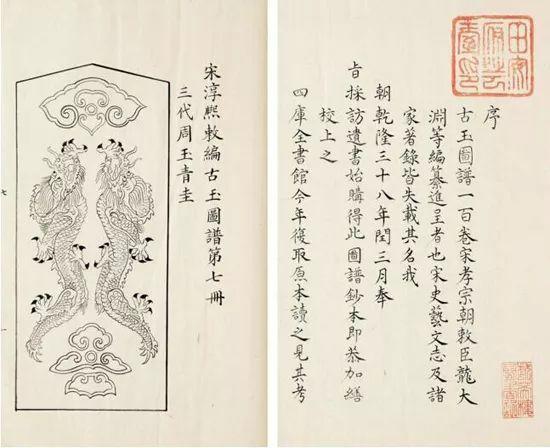 序
古玉圖譜一百卷宋孝宗朝敕臣龍大
淵等編纂進呈者也宋史藝文志及諸
家著錄皆失載其名我
朝乾隆三十八年閏三月奉
旨採訪遺書始購得此圖譜鈔本即恭加繕
校上之
四庫全書館今年復取原本讀之見其考
宋淳熙敕編古玉圖譜第七冊
三代周玉青圭
七